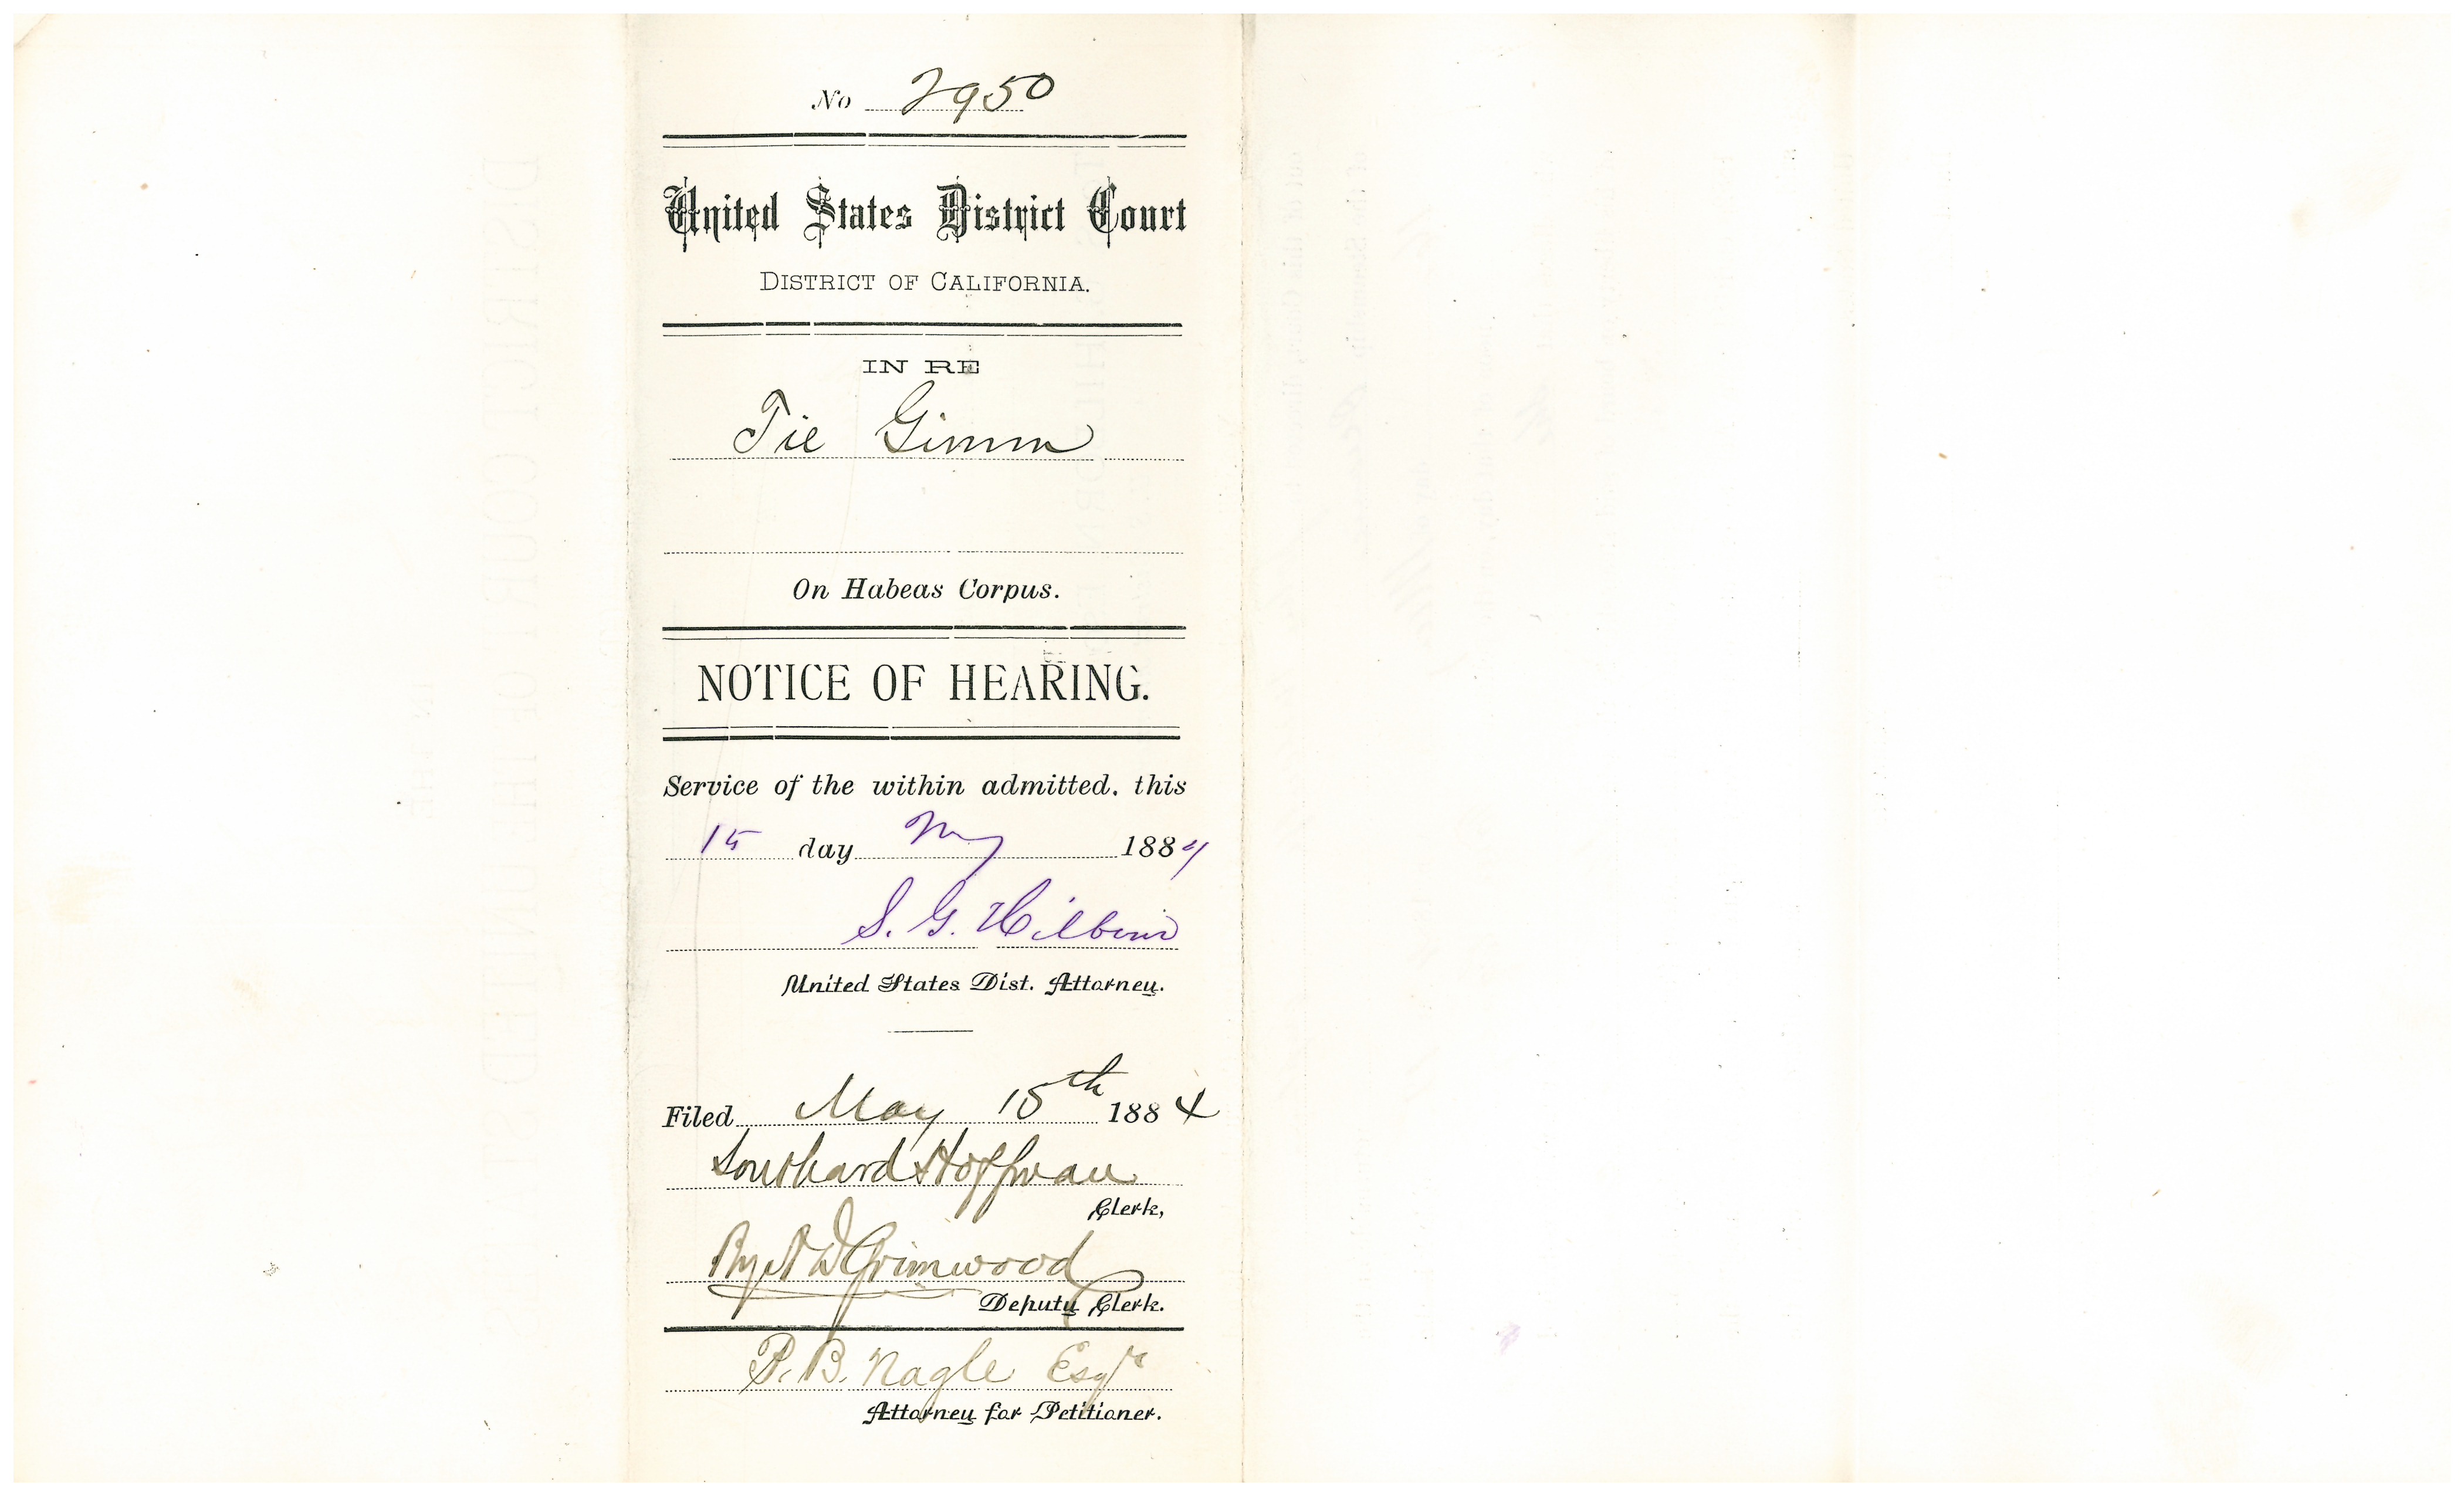 No 2950
United States District Court
DISTRICT OF CALIFORNIA.
IN RE
Tie Gimm
On Habeas Corpus.
NOTICE OF HEARING.
Service of the within admitted, this
15 day May 1884
S. G. Hilborn
United States Dist. Attorney.
Filed May 15th 1884
Southard Hoffman
Clerk,
By Grimwood
Deputy Clerk.
P. B. Nagle Esqr
Attorney for Petitioner.